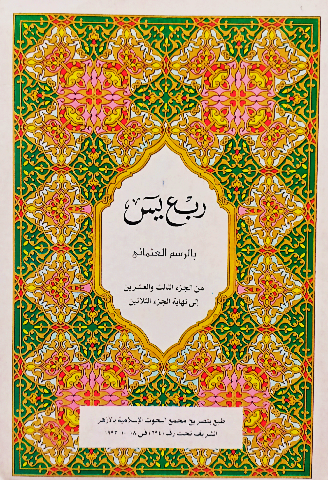 ربع يس
بالرسم العثماني
من الجزء الثالث والعشرين
إلى نهاية الجزء الثلاثين
طبع بتصريح مجمع البحوث الإسلامية بالأزهر
الشريف تحت رقم